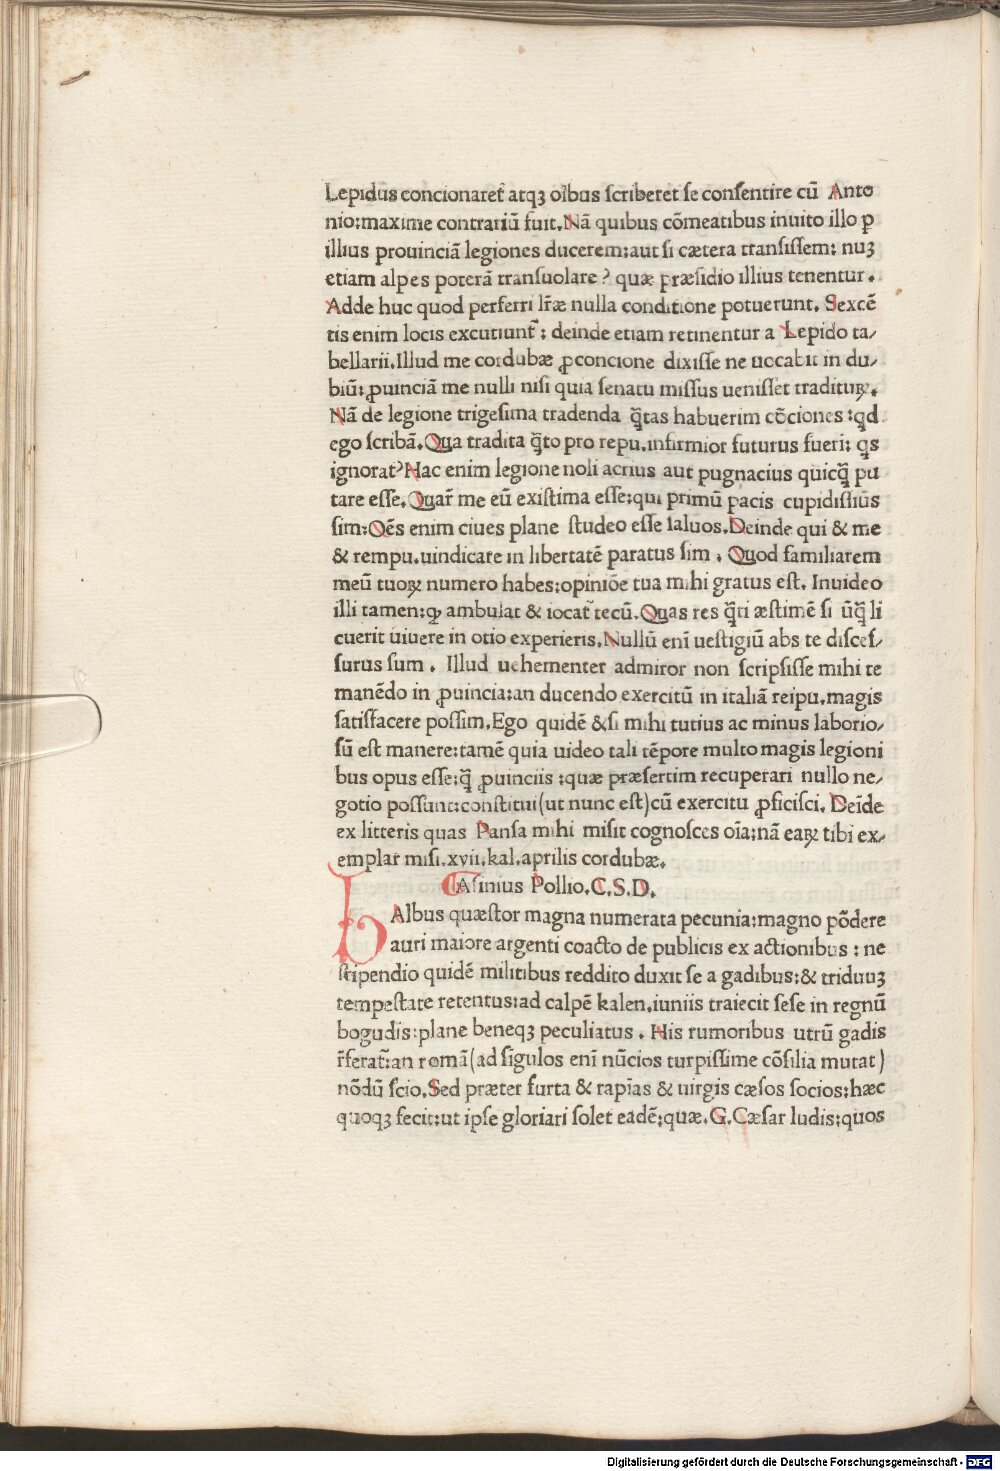 Lepidus concionaret᷑ atqꝫ oībus ſcriberet ſe conſentire cū Anto
nio:maxime contrariū fuit.Nā quibus cōmeatibus inuito illo ꝑ
illius prouinciā legiones ducerem:aut ſi cætera tranſiſſem: nuꝫ
etiam alpes poterā tranſuolare? quæ præſidio illius tenentur.
Adde huc quod perferri lr̄æ nulla conditione potuerunt. Sexcē
tis enim locis excutiunt᷑: deinde etiam retinentur a Lepido ta/
bellarii.Illud me cordubæ ꝓconcione dixiſſe ne uocabit in du/
biū:ꝓuinciā me nulli niſi quia ſenatu miſſus ueniſſet traditurꝝ.
Nā de legione trigeſima tradenda q̄tas habuerim cōciones:qd
ego ſcribā.Qua tradita q̄to pro repu.infirmior futurus fueri: qs
ignorat?Hac enim legione noli acrius aut pugnacius quicq̄ pu
tare eſſe.Quar̄ me eū exiſtima eſſe:qui primū pacis cupidiſſiūs
ſim:Oēs enim ciues plane ſtudeo eſſe ſaluos.Deinde qui & me
& rempu.uindicare in libertatē paratus ſim . Quod familiarem
meū tuoꝝ numero habes:opiniōe tua mihi gratus eſt. Inuideo
illi tamen:ꝙ ambulat & iocat᷑ tecū.Quas res q̄ti æſtimē ſi ūq̄ li
cuerit uiuere in otio experieris.Nullū enī ueſtigiū abs te diſceſ/
ſurus ſum . Illud uehementer admiror non ſcripſiſſe mihi te
manēdo in ꝓuincia:an ducendo exercitū in italiā reipu.magis
ſatiſfacere poſſim.Ego quidē &ſi mihi tutius ac minus laborio/
ſū eſt manere:tamē quia uideo tali tēpore multo magis legioni
bus opus eſſe:q̄ ꝓuinciis :quæ præſertim recuperari nullo ne/
gotio poſſunt:conſtitui(ut nunc eſt)cū exercitu ꝓficiſci. Deīde
ex litteris quas Panſa mihi miſit cognoſces oīa:nā eaꝝ tibi ex/
emplar miſi.xvii.kal.aprilis cordubæ.
Aſinius Pollio.C.S.D.
bAlbus quæſtor magna numerata pecunia:magno pōdere
auri maiore argenti coacto de publicis ex actionibus : ne
ſtipendio quidē militibus reddito duxit ſe a gadibus:& triduuꝫ
tempeſtate retentus:ad calpē kalen.iuniis traiecit ſeſe in regnū
bogudis:plane beneqꝫ peculiatus . His rumoribus utrū gadis
r̄ferat᷑:an romā(ad ſigulos enī nūcios turpiſſime cōſilia mutat)
nōdū ſcio.Sed præter furta & rapias & uirgis cæſos ſocios:hæc
quoqꝫ fecit:ut ipſe gloriari ſolet eadē:quæ.G.Cæſar ludis:quos
Digitalisierung gefördert durch die Deutsche Forschungsgemeinschaft - DFG